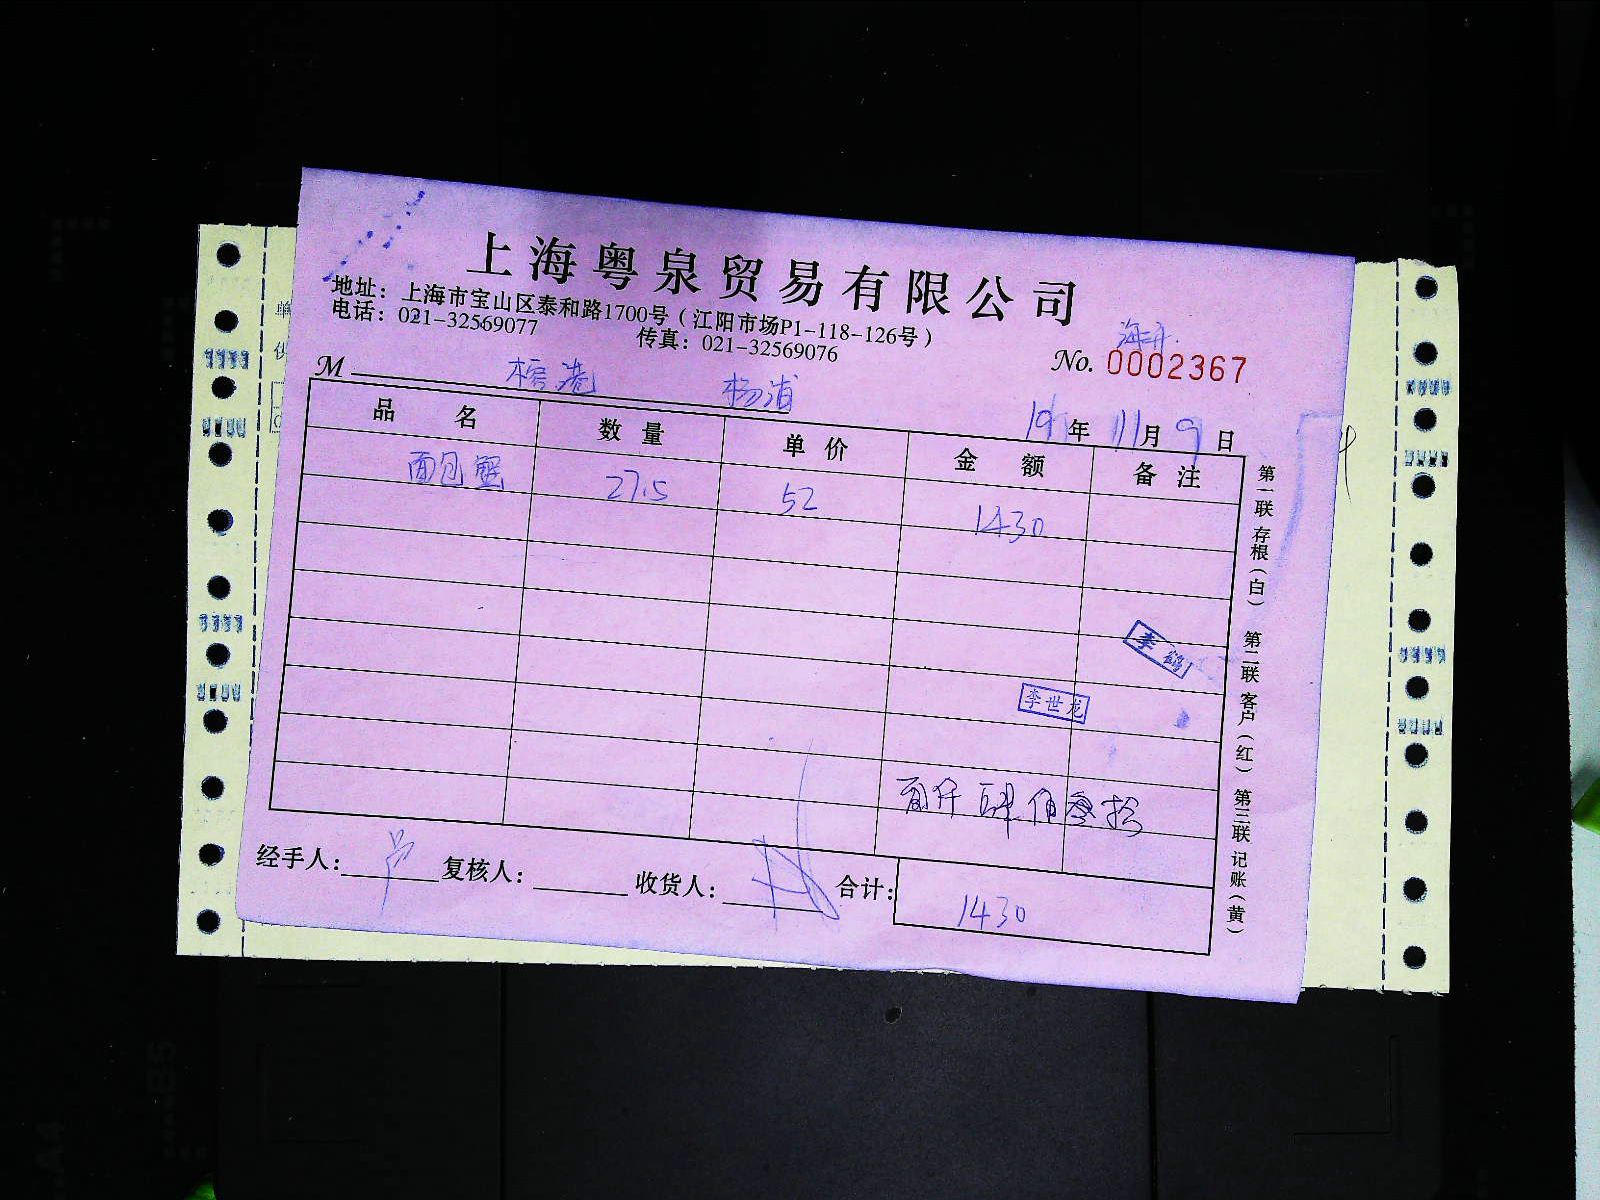 上海粤泉贸易有限公司
地址：上海市宝山区泰和路1700号（江阳市场P1-118-126号）
电话：021-32569077 传真：021-32569076
No. 0002367
M 榕港 杨浦
19年11月9日
品名 数量 单价 金额 备注
面包蟹 27.5 52 1430
李鸽
李世龙
肆佰叁拾
经手人： 复核人： 收货人： 合计： 1430
第一联 存根（白） 第二联 客户（红） 第三联 记账（黄）